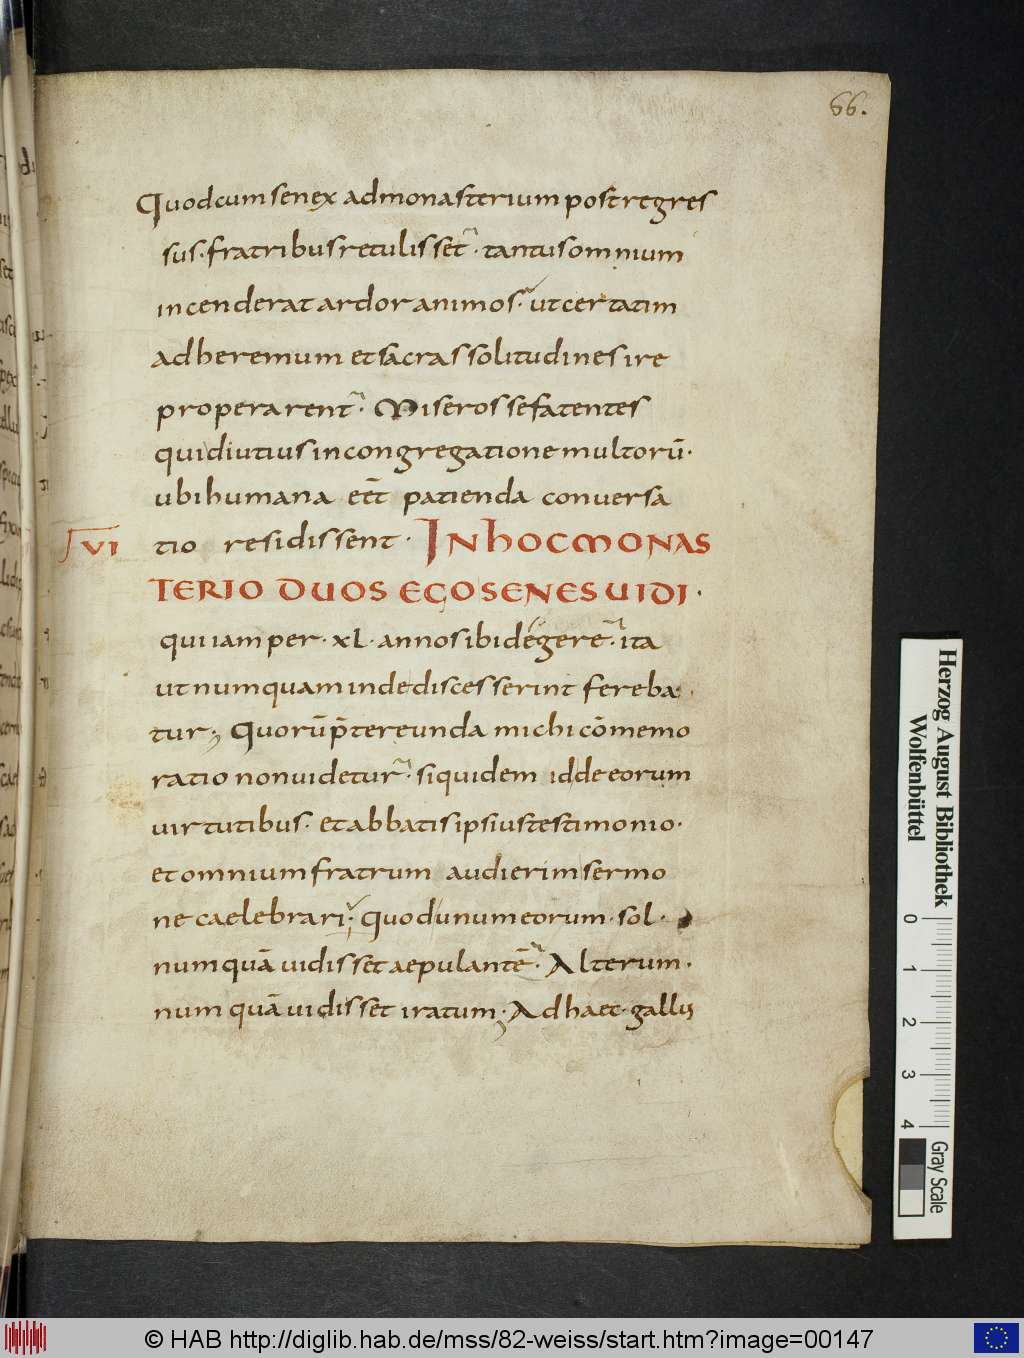 66.
Quodcum senex admonasterium post regres
sus. fratribus retulisset. tantus omnium
incenderat ardor animos. ut certatim
adheremum et sacras solitudines ire
properarent. Miseros se fatentes
qui diutius in congregatione multorū.
ubi humana eēt patienda conversa
VI tio residissent. IN HOC MONAS
TERIO DUOS EGO SENES UIDI.
qui iam per. xl. annos ibi degere. ita
ut numquam inde discesserint fereba
tur; Quorū p̄tereunda michi cōmemo
ratio non uidetur. siquidem id de eorum
uirtutibus. et abbatis ipsius testimonio.
et omnium fratrum audierim sermo
ne caelebrari; quod unum eorum. sol.
numquā uidisset aepulantē. Alterum.
numquā uidisset iratum; Ad haec. gallus
Herzog August Bibliothek
Wolfenbüttel
0 1 2 3 4
Gray Scale
© HAB http://diglib.hab.de/mss/82-weiss/start.htm?image=00147